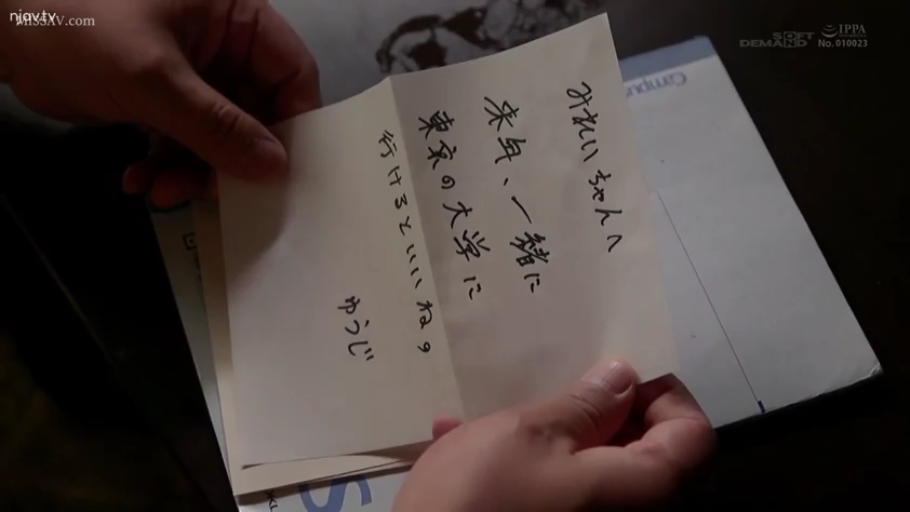 njav.tv
MISSAV.COM
SOFT
DEMAND
IPPA
No. 010023
Campus
みれいちゃんへ
来年、一緒に
東京の大学に
行けるといいね。
ゆうじ
S